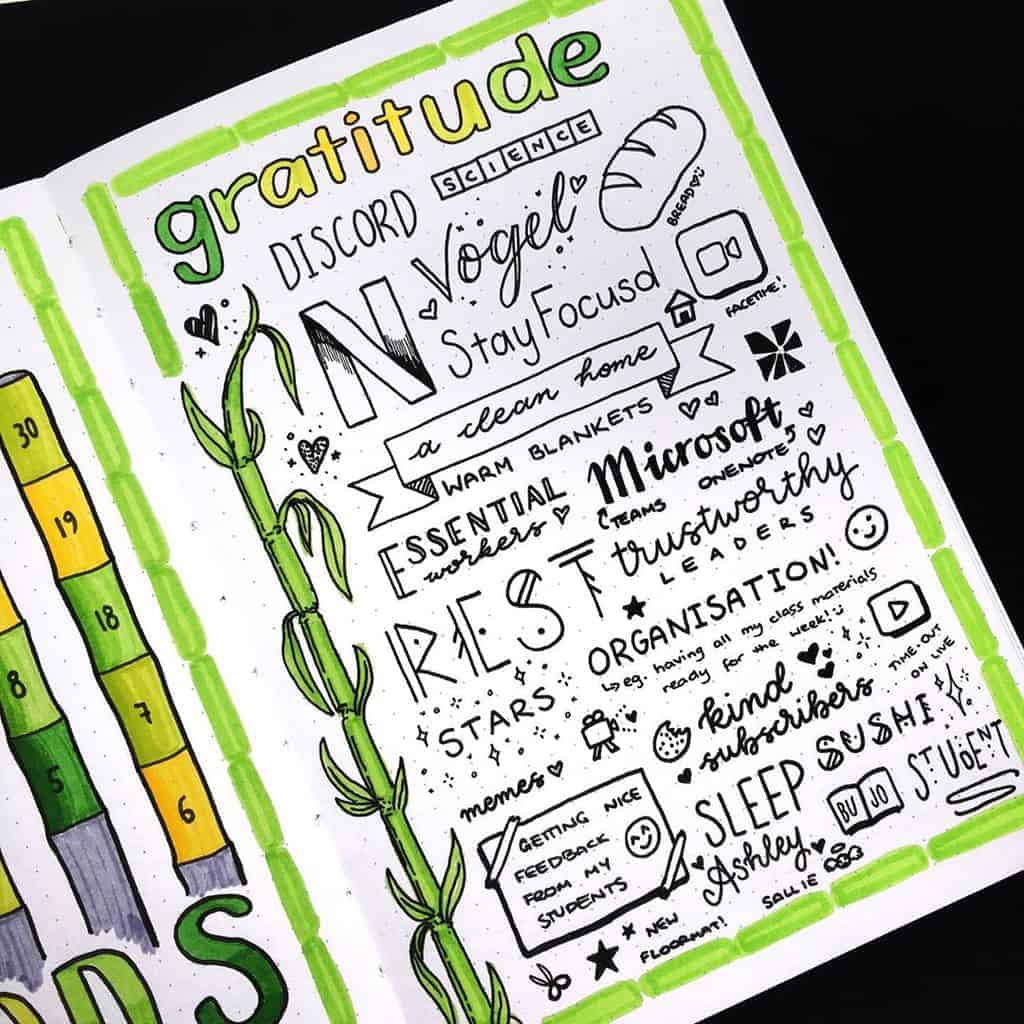 gratitude
DISCORD
SCIENCE
Vogel
BREAD
N
StayFocusd
FACETIME!
a clean home
WARM BLANKETS
Microsoft
TEAMS
ONENOTE
ESSENTIAL
workers
trustworthy
LEADERS
REST
ORGANISATION!
eg. having all my class materials
ready for the week!
TIME-OUT
ON LIVE
STARS
kind
subscribers
SUSHI
STUDENT
memes
SLEEP
BUJO
GETTING NICE
FEEDBACK
FROM MY
STUDENTS
Ashley
SALLIE
NEW
FLOORMAT!
30
19
18
7
6
8
5
DS